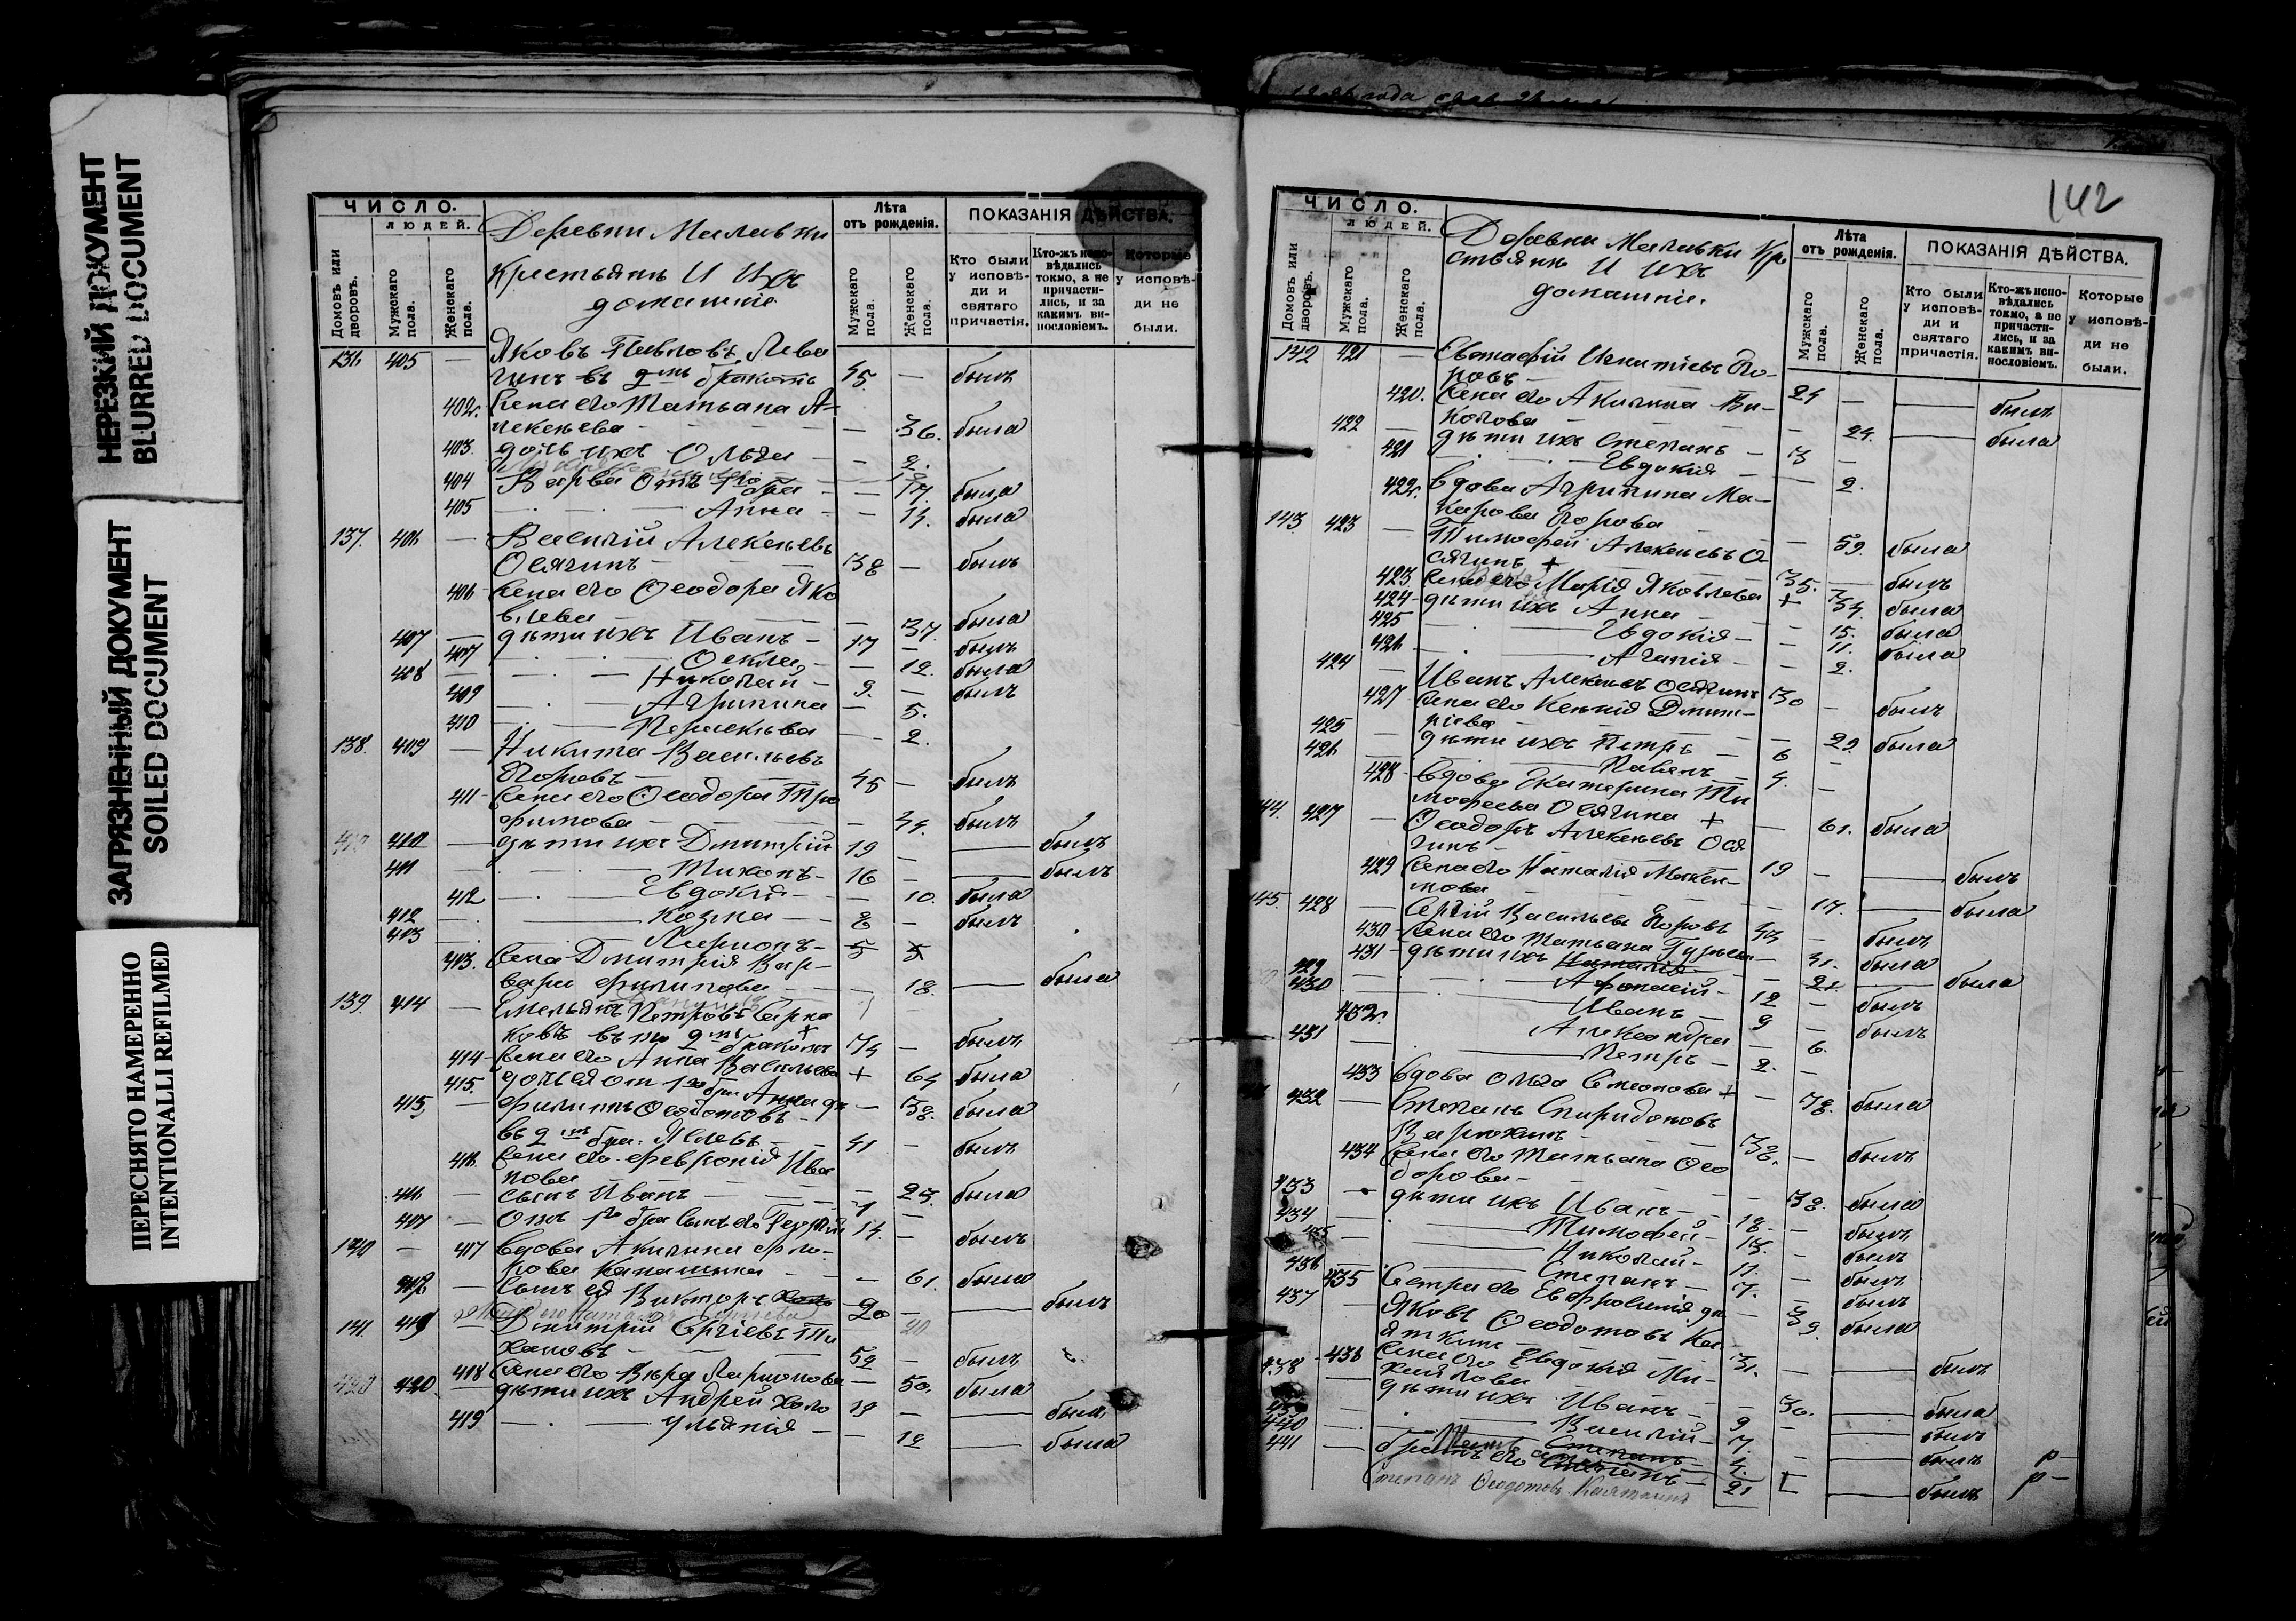 НЕРЕЗКИЙ ДОКУМЕНТ
BLURRED DOCUMENT
ЗАГРЯЗНЕННЫЙ ДОКУМЕНТ
SOILED DOCUMENT
ПЕРЕСНЯТО НАМЕРЕННО
INTENTIONALLI REFILMED
ЧИСЛО.
ЛЮДЕЙ.
Домовъ или дворовъ.
Мужскаго пола.
Женскаго пола.
Деревни Милавки
Крестьянъ И Ихъ
домашніе
Лѣта
отъ рожденія.
Мужскаго пола.
Женскаго пола.
ПОКАЗАНІЯ ДѢЙСТВА.
Кто были у исповѣди и святаго причастія.
Кто-жъ исповѣдались токмо, а не причастились, и за какимъ винословіемъ.
Которые у исповѣди не были.
136 405 — Яковъ Павловъ
въ 2мъ бракомъ 45 — былъ
402 Жена его Татьяна А-
лексѣева — 36. была
403 дочь ихъ Ольга — 2.
404 Варвара отъ 1го бра — 17. была
405 Анна — 14. была
137. 406 — Василій Алексѣевъ
Осягинъ 38 — былъ
406 Жена его Ѳеодора Яко
влева — 37. была
407 — дѣти ихъ Иванъ 17 — былъ
407 Ѳекла — 12. была
408 — Николай 9. — былъ
409 Агрипина — 5.
410 Пораскева — 2.
138. 409 — Никита Васильевъ
Егоровъ 45 — былъ
411 Жена его Ѳеодора Тро
фимова — 44. былъ
410 — дѣти ихъ Димитрій 19 — былъ
411 — Тихонъ 16 — былъ
412 Евдокія — 10. была
412 — Козма 8 — былъ
413 — Ларионъ 5
413. Жена Димитрія Вар-
вара Филипова — 18. — была
139. 414 — Емельянъ Петровъ
въ 2мъ бракомъ 74 — былъ
414 Жена его Анна Васильева + 64 была
415. дочь ея от 1го бра Анна дѣ — 38. была
415 — Филипъ Ѳеодотовъ
въ 2мъ бра. 41 — былъ
416. Жена его Февронія Ива
нова — 23. была
416 — Сынъ Иванъ 1 —
417 — Отъ 1го бра Сынъ его Георгій 14. — былъ
140 — 417 Вдова Акилина Фло-
рова — 61. была
418 — Сынъ ея Викторъ 20 — былъ
141. 419 — Димитрій Сергіевъ Ти
хановъ 52 — былъ
418 Жена его Вѣра Ларионова — 50. была
420 — дѣти ихъ Андрей холо 19 — былъ
419 Ульянія — 12 — была
142
ЧИСЛО.
ЛЮДЕЙ.
Домовъ или дворовъ.
Мужскаго пола.
Женскаго пола.
Деревни Милавки Кре
стьянъ И ихъ
домашніе.
Лѣта
отъ рожденія.
Мужскаго пола.
Женскаго пола.
ПОКАЗАНІЯ ДѢЙСТВА.
Кто были у исповѣди и святаго причастія.
Кто-жъ исповѣдались токмо, а не причастились, и за какимъ винословіемъ.
Которые у исповѣди не были.
142 421 — Евстафій Игнатіевъ Его-
ровъ 24 — былъ
420. Жена его Акилина Ни-
колова — 24. — была
422 — дѣти ихъ Степанъ 3 —
421 Евдокія — 2.
422. Вдова Агрипина Ма-
карова Егорова — 59. была
143 423 — Тимофей Алексѣевъ О
сягинъ + 35. — былъ
423 Жена его Марія Яковлева + 34. была
424 дѣти ихъ Анна — 15. была
425 Евдокія — 11. была
426 Агапія — 2.
424 — Иванъ Алексѣевъ Осягинъ 30 — былъ
427 Жена его Ксенія Димит-
ріева — 29. была
425 — дѣти ихъ Петръ 6 —
426 — Павелъ 4. —
428 Вдова Екатерина Ти
мофеева Осягина + — 61. была
144. 427 — Ѳеодоръ Алексѣевъ Ося
гинъ 19 — былъ
429 Жена его Наталія Макси-
мова — 17. — была
145. 428 — Сергій Васильевъ Егоровъ 43 — былъ
430 Жена его Татьяна Гурьева — 41. была
431 дѣти ихъ Наталія — 21. — была
429 — Афонасій 12 — былъ
430 — Иванъ 9 — былъ
432. Александра — 6.
431 — Петръ 2. —
433 Вдова Ольга Симонова + — 78. была
432 — Степанъ Спиридоновъ
38. — былъ
434 Жена его Татьяна Ѳео
дорова — 38. была
433 — дѣти ихъ Иванъ 18. — былъ
434 — Тимофей 13. — былъ
435 — Николай 11. — былъ
436 — Степанъ 7. — былъ
435 Сестра его Евфросинія дѣ — 39. была
437 — Яковъ Ѳеодотовъ Ка
31. — былъ
436 Жена его Евдокія Ми-
хайлова — 30. — была
438 — дѣти ихъ Иванъ 9 — былъ
439 — Василій 7. — былъ
440
441 — братъ его 21 — былъ
Степанъ Ѳеодотовъ